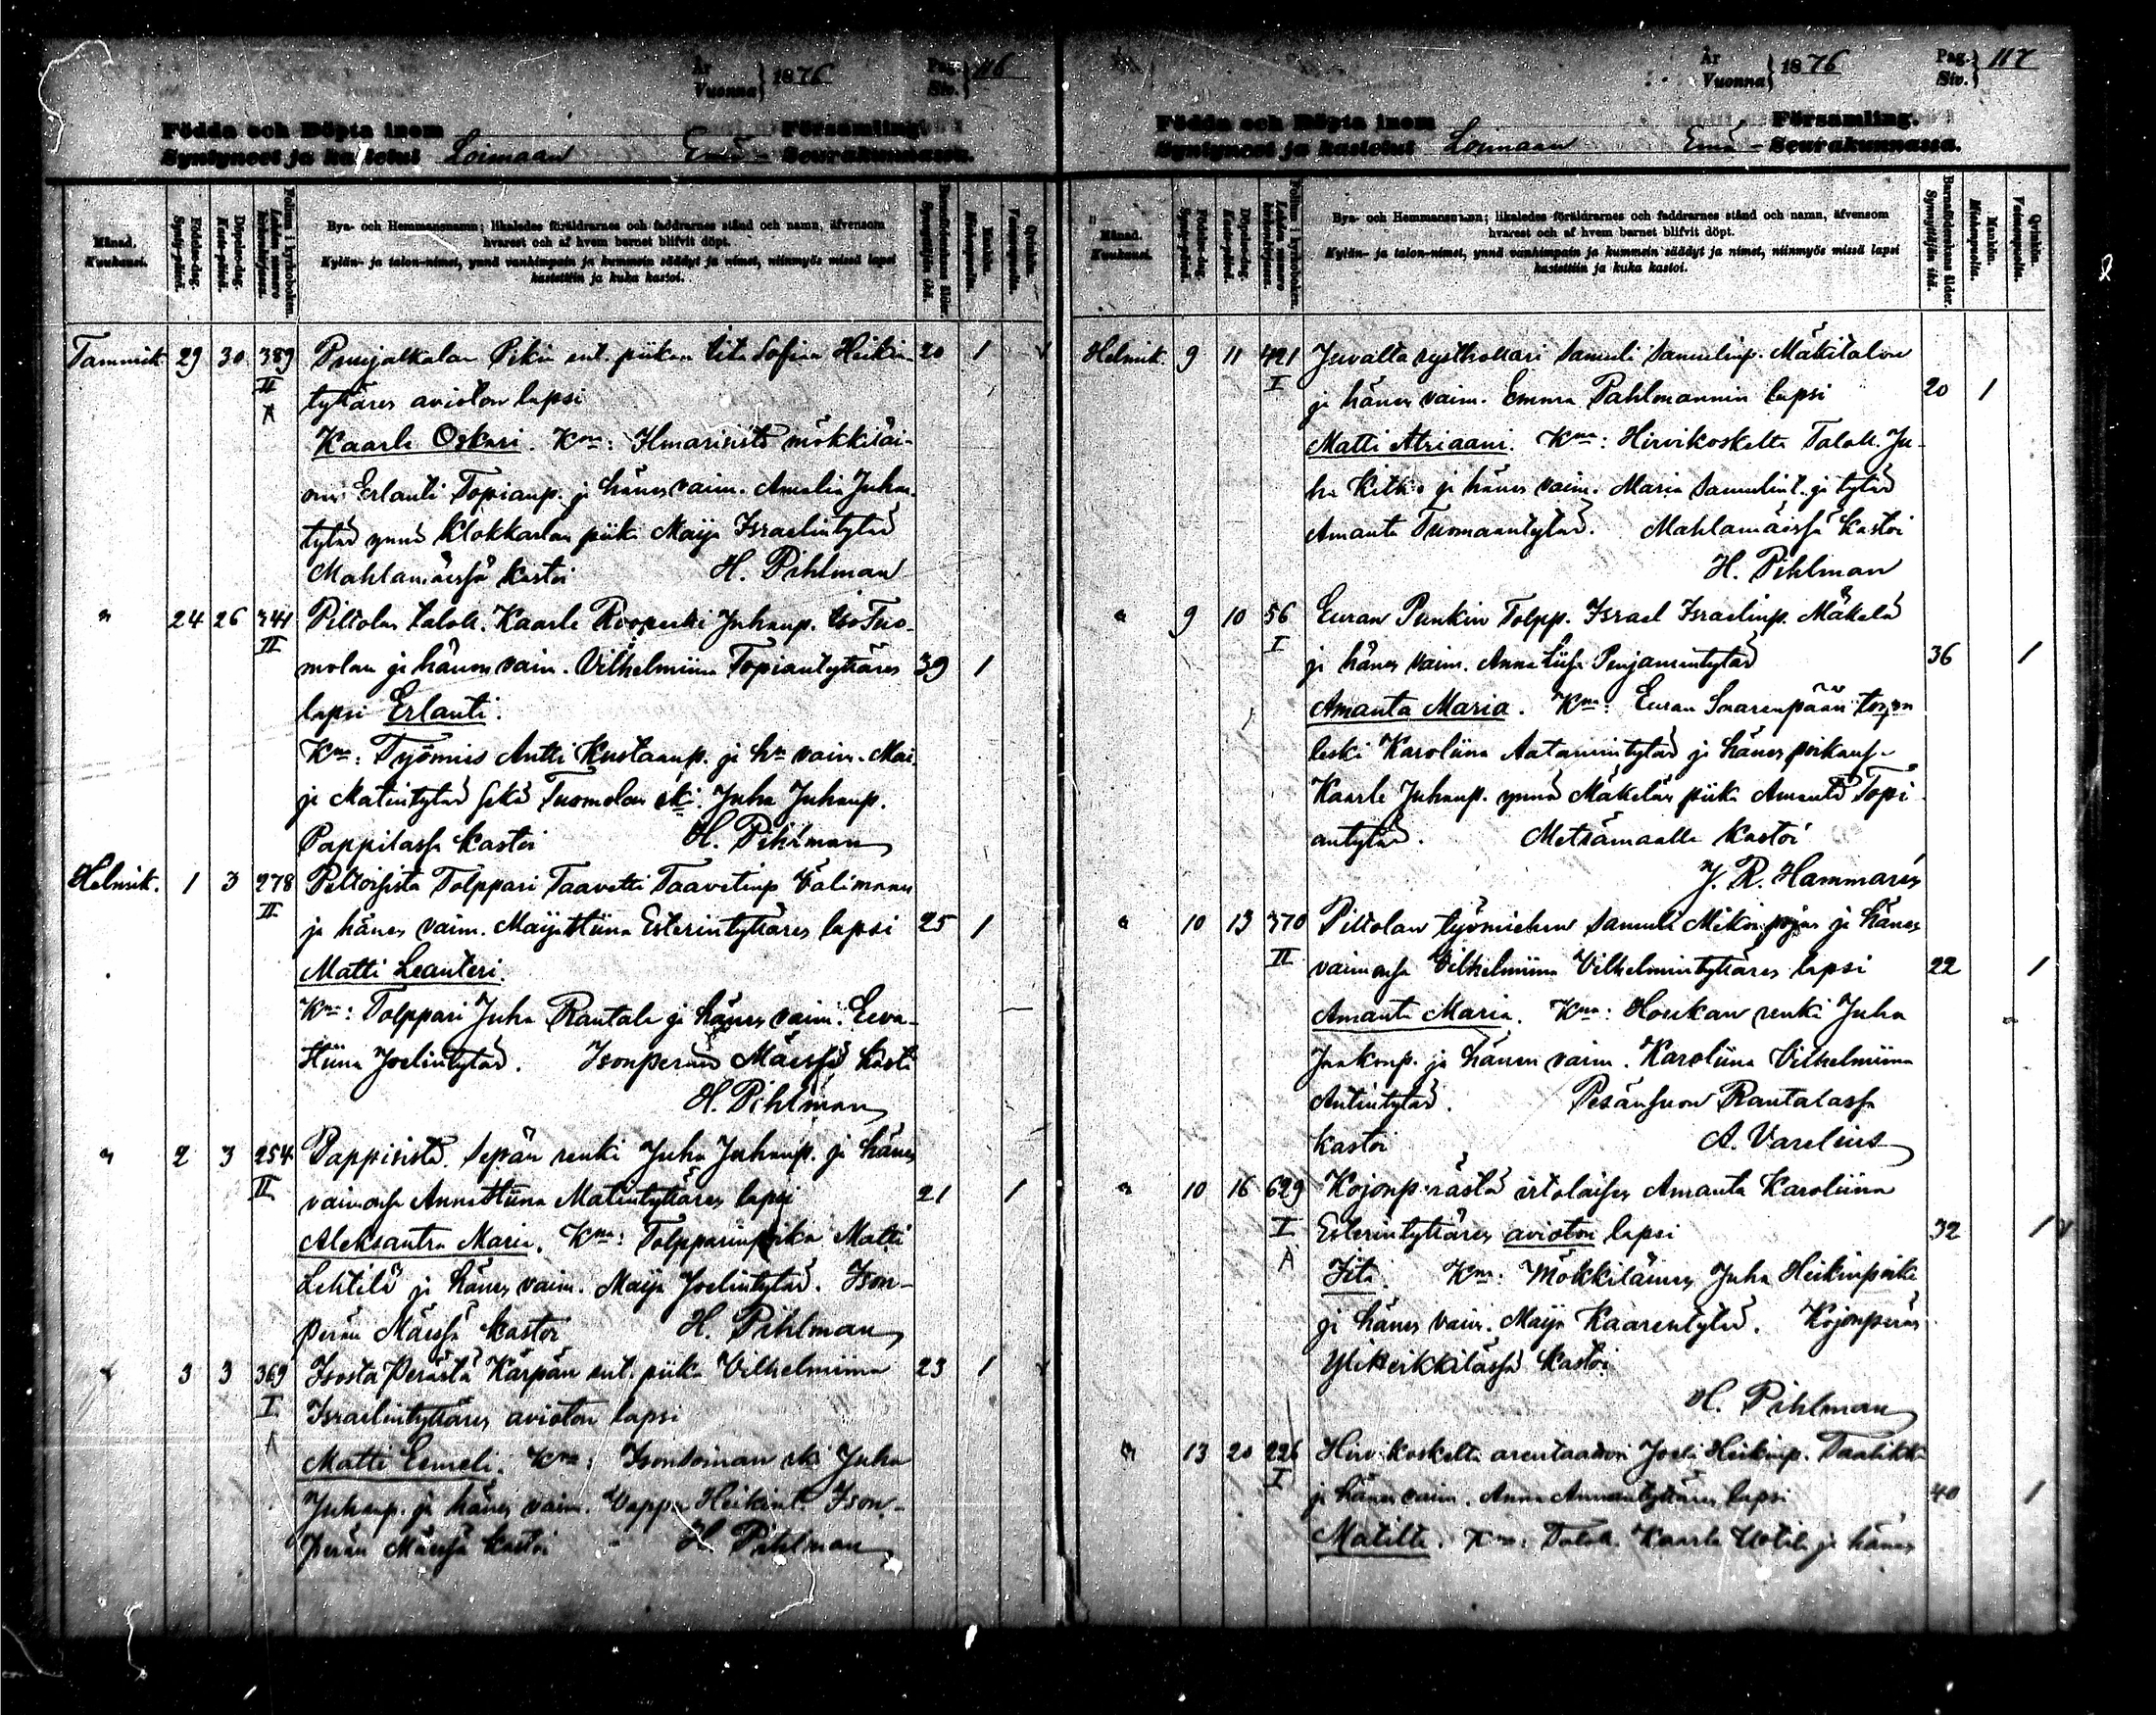 År
Vuonna } 1876
Pag.
Siv. } 116
Födda och Döpta inom Församling.
Syntyneet ja kastetut Loimaan Emä- Seurakunnassa.
Månad. Kuukausi.
Födelse-dag. Synty-päivä.
Döpelse-dag. Kaste-päivä.
Folium i kyrkoboken. Lehden numero kirkonkirjassa.
Bya- och Hemmansnamn; likaledes föräldrarnes och faddrarnes stånd och namn, äfvensom
hvarest och af hvem barnet blifvit döpt.
Kylän- ja talon-nimet, ynnä vanhimpain ja kummein säädyt ja nimet, niinmyös missä lapsi
kastettiin ja kuka kastoi.
Barnaföderskans ålder. Synnyttäjän ikä.
Mankön. Miehenpuolia.
Qvinkön. Vaimonpuolia.
Tammik. 29 30 389 Puujalkalan Pekin ent. piikan Sofian Heikin 20 1
II tyttären avioton lapsi
A
Kaarle Oskari. Kmt: Ilmarisista mökkiläi-
nen Erlanti Topianp. ja hänen vaim. Amalia Juhan-
tytär ynnä Klokkarlan piika Maija Israelintytär
Mahlamäessä kastoi H. Pihlman
" 24 26 341 Piltolan talok. Kaarle Rooperti Juhanp. Iso Tuo-
II molan ja hänen vaim. Vilhelmiina Topiantyttären 39 1
lapsi Erlanti.
Kmt: Työmies Antti Kustaanp. ja hn vaim. Mai-
ja Matintytär sekä Tuomolan Juha Juhanp.
Pappilassa kastoi H. Pihlman
Helmik. 1 3 278 Peltoisista Tolppari Taavetti Taavetinp Välimaan
II ja hänen vaim. Maija Stiina Esterintyttären lapsi 25 1
Matti Leanteri.
Kmt: Tolppari Juha Rautala ja hänen vaim. Eeva-
Stiina Joelintytär. Isonperän Mäessä kastoi
H. Pihlman
" 2 3 254 Pappisista Sepän renki Juha Juhanp. ja hänen
II vaimonsa Anna Stiina Matintyttären lapsi 21 1
Aleksantra Maria. Kmt: Tolpparinpoika Matti
Lehtilä ja hänen vaim. Maija Joelintytär. Ison-
perän Mäessä kastoi H. Pihlman
" 3 3 369 Isosta Perästä Kärpän ent. piika Vilhelmiina 23 1
I Israelintyttären avioton lapsi
A
Matti Eemeli. Kmt: Isonsoinian Juha
Juhanp. ja hänen vaim. Vappu Heikint. Ison-
Perän Mäessä kastoi H. Pihlman
År
Vuonna } 1876
Pag.
Siv. } 117
Födda och Döpta inom Församling.
Syntyneet ja kastetut Loimaan Emä- Seurakunnassa.
Månad. Kuukausi.
Födelse-dag. Synty-päivä.
Döpelse-dag. Kaste-päivä.
Folium i kyrkoboken. Lehden numero kirkonkirjassa.
Bya- och Hemmansnamn; likaledes föräldrarnes och faddrarnes stånd och namn, äfvensom
hvarest och af hvem barnet blifvit döpt.
Kylän- ja talon-nimet, ynnä vanhimpain ja kummein säädyt ja nimet, niinmyös missä lapsi
kastettiin ja kuka kastoi.
Barnaföderskans ålder. Synnyttäjän ikä.
Mankön. Miehenpuolia.
Qvinkön. Vaimonpuolia.
Helmik. 9 11 421 Juvalta rysthollari Samuli Samulinp. Mäkitalon
I ja hänen vaim. Emma Pahlmannin lapsi 20 1
Matti Atriaani. Kmt: Hirvikoskelta Talok. Ju-
ha Kitko ja hänen vaim. Maria Samulint. ja tytär
Amanta Tuomaantytär. Mahlamäessä kastoi
H. Pihlman
" 9 10 56 Euran Punkin Tolpp. Israel Israelinp. Mäkelä
I ja hänen vaim. Anna Liisa Penjamintytär 36 1
Amanta Maria. Kmt: Euran Saarenpään torpan
leski Karoliina Aatamintytär ja hänen poikansa
Kaarle Juhanp. ynnä Mäkelän piika Amanta Topi-
antytär. Metsämaalla kastoi
J. R. Hammarén
" 10 13 370 Piltolan työmiehen Samuli Mikonpojan ja hänen
II vaimonsa Vilhelmiina Vilhelmintyttären lapsi 22 1
Amanta Maria. Kmt: Houkan renki Juha
Jaakonp. ja hänen vaim. Karoliina Vilhelmiina
Antintytär. Pesänsuon Rautalassa
kastoi A. Varelius
" 10 16 629 Kojonperästä irtolaisen Amanta Karoliina
I Esterintyttären aviotoin lapsi 32 1
A
Iita. Kmt: Mökkiläinen Juha Heikinpoika
ja hänen vaim. Maija Kaarentytär. Kojonperän
Yliheikkilässä kastoi
H. Pihlman
" 13 20 226 Hirvikoskelta arentaattori Joeli Heikinp.
I ja hänen vaim. Anna Annantyttären lapsi 40 1
Matilta. Kmt: Talok. Kaarle Uotila ja hänen